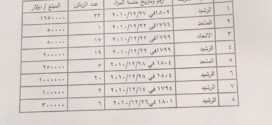 رقم وتاريخ جلسة المزاد عدد الزبائن المبلغ / دولار
١ الرشيد ١٨٠٢ في ٢٠١٠/١٢/٢٧ ٣٣ ١٦٥٠٠٠٠
٢ المتحد ١٧٩٩ في ٢٠١٠/١٢/٢٢
٣ الاتحاد ١٧٩٩ في ٢٠١٠/١٢/٢٢ ١٧
٤ الرشيد ١٧٩٩ في ٢٠١٠/١٢/٢٢ ١٩ ٩٠٠٠٠٠
٥ المتحد ١٨٠٤ في ٢٠١٠/١٢/٢٨ ٥
٦ الرشيد ١٨٠٤ في ٢٠١٠/١٢/٢٨ ٢٠ ١٠٠٠٠٠٠
٧ الرشيد ١٧٩٤ في ٢٠١٠/١٢/١٤ ٢ ١٠٠٠٠٠
٨ الرشيد ١٨٠١ في ٢٠١٠/١٢/٢٦ ٦ ٣٠٠٠٠٠